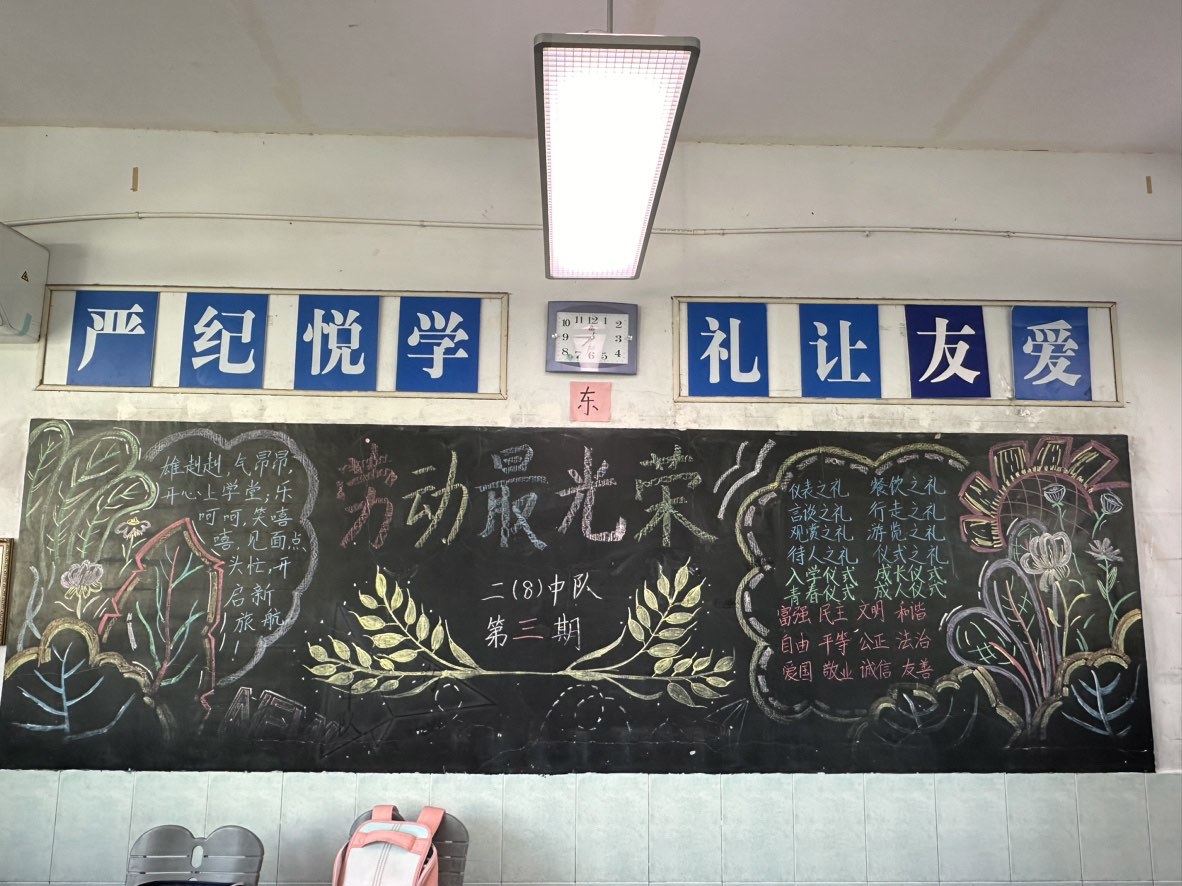 严纪悦学
礼让友爱
11 12 1
10 2
9 3
8 4
7 6 5
东
劳动最光荣
二(8)中队
第三期
雄赳赳,气昂昂,
开心上学堂;乐
呵呵,笑嘻
嘻,见面点
头忙,开
启新
旅航
仪表之礼 餐饮之礼
言谈之礼 行走之礼
观赏之礼 游览之礼
待人之礼 仪式之礼
入学仪式 成长仪式
青春仪式 成人仪式
富强 民主 文明 和谐
自由 平等 公正 法治
爱国 敬业 诚信 友善